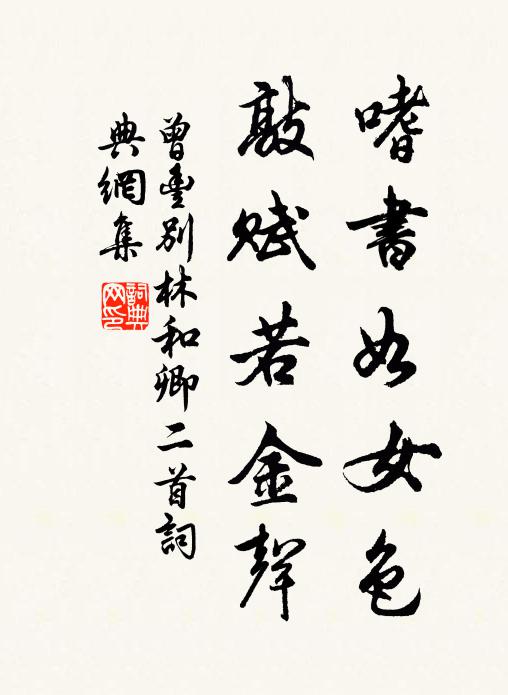 嗜書如女色
敲賦若金聲
曾豐別林和卿二首詞
典網集
詞典
网印